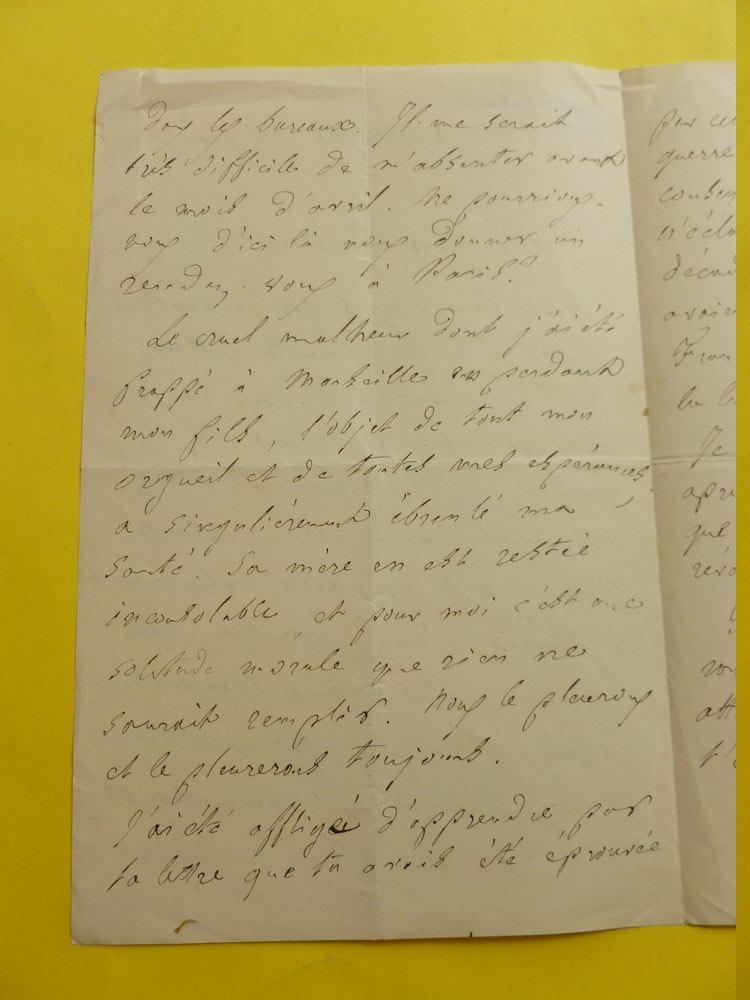 dans les bureaux. Il me serait
très difficile de m'absenter avant
le mois d'avril. Ne pourriez-
vous d'ici là nous donner un
rendez-vous à Paris?
Le cruel malheur dont j'ai été
frappé à Marseille en perdant
mon fils, l'objet de tout mon
orgueil et de toutes mes espérances,
a singulièrement ébranlé ma
santé. Sa mère en est restée
inconsolable et pour moi c'est une
solitude morale que rien ne
saurait remplir. Nous le pleurons
et le pleurerons toujours.
J'ai été affligé d'apprendre par
ta lettre que tu avais été éprouvée
par ce
guerre
consen
n'écla
décad
avaie
Fran
la
Je
apr
que
att